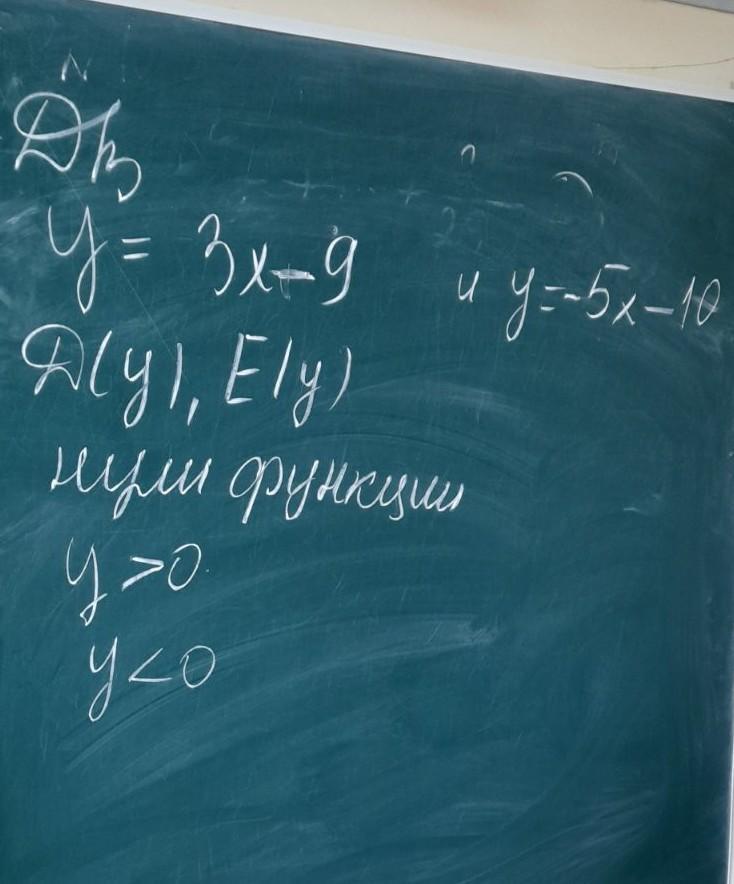 Дз
y = 3x - 9 и y = -5x - 10
Д(y), E(y)
нули функции
y > 0
y < 0